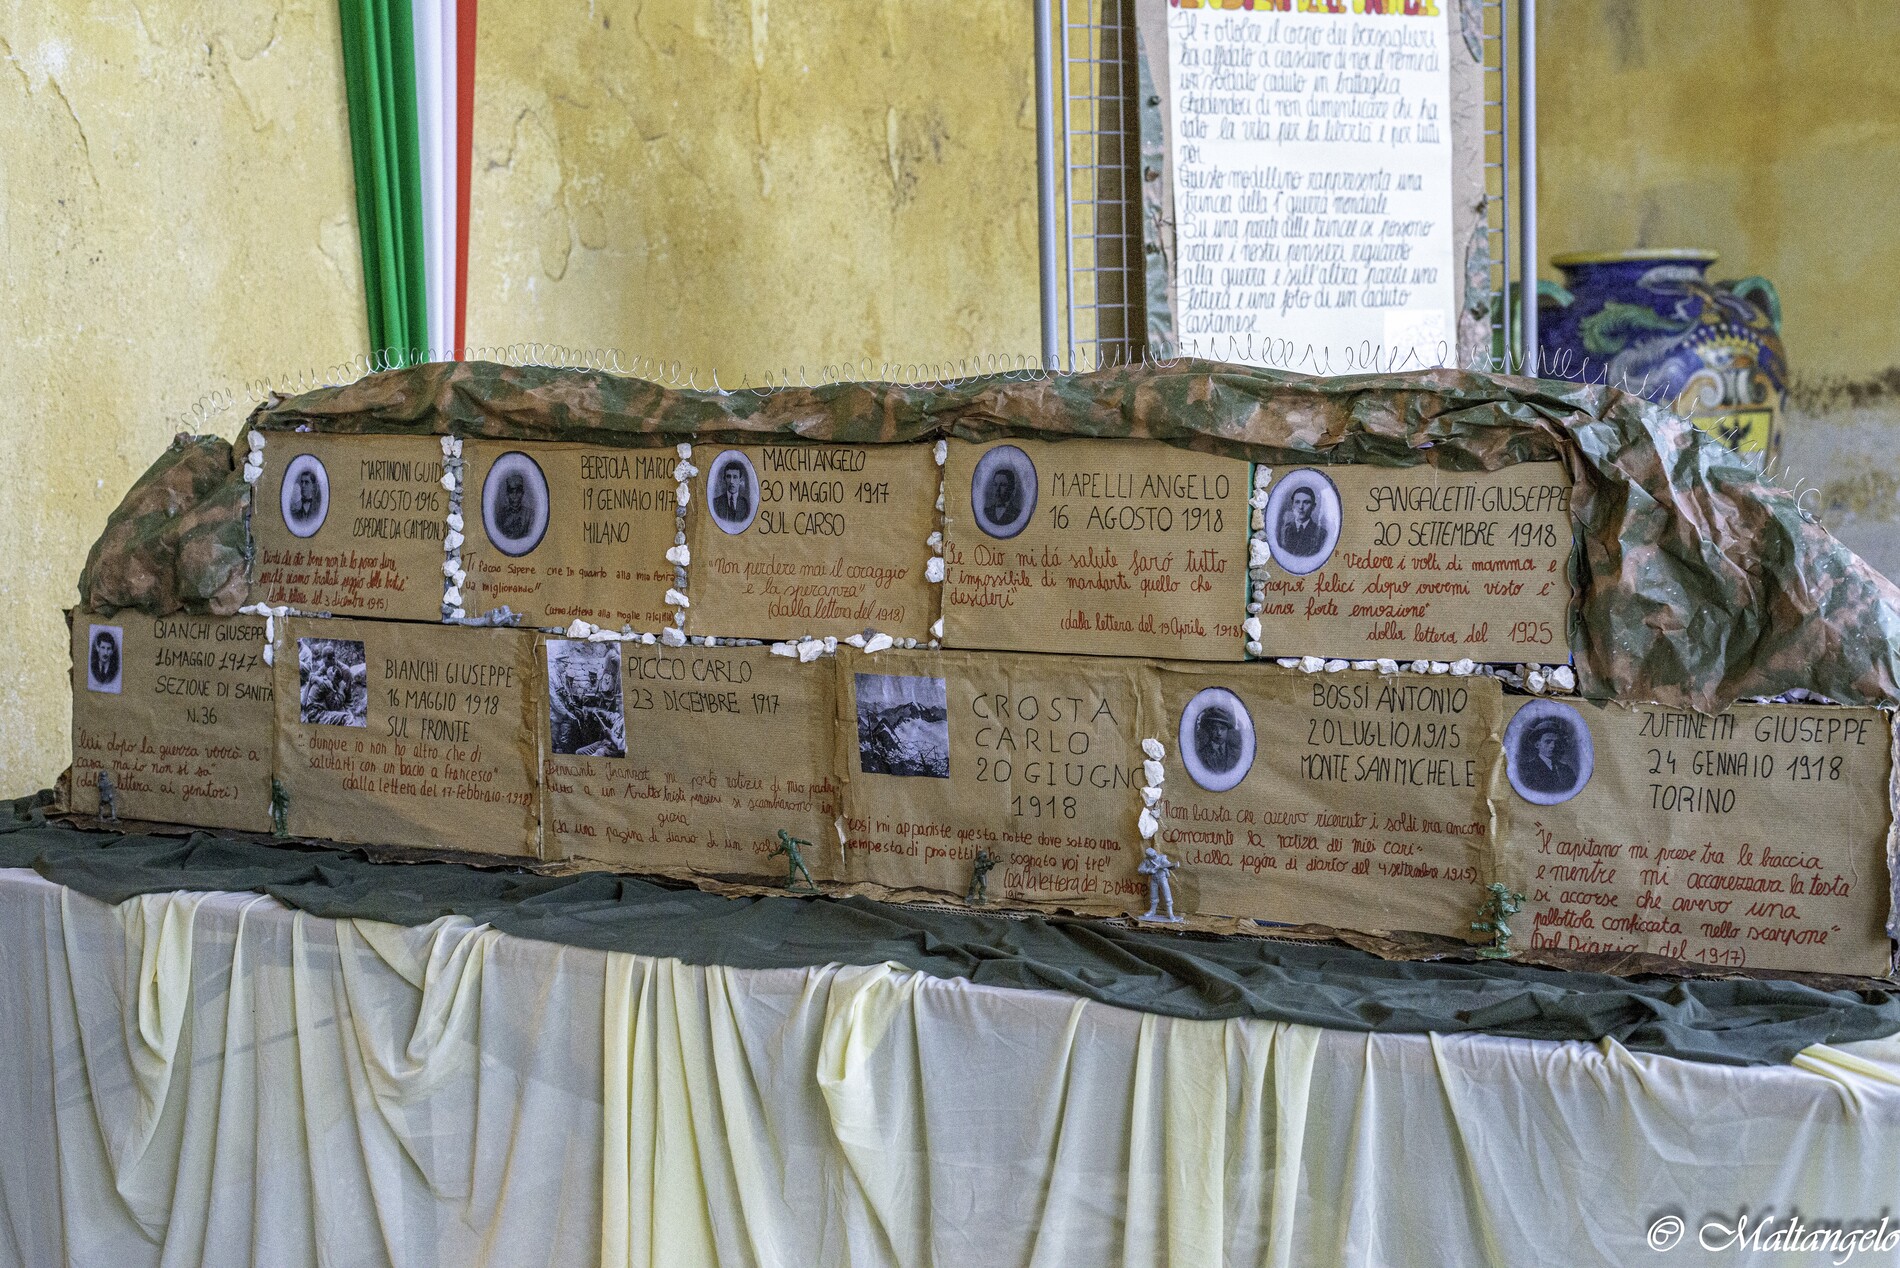 Il 7 ottobre il corpo dei bersaglieri
ha affidato a ciascuno di noi il nome di
un soldato caduto in battaglia
chiedendoci di non dimenticare chi ha
dato la vita per la libertà e per tutti
noi.
Questo modellino rappresenta una
trincea della 1ª guerra mondiale.
Su una parete delle trincee si possono
vedere i nostri pensieri riguardo
alla guerra e sull'altra parete una
lettera e una foto di un caduto
castanese.
MARTINONI GUID
1 AGOSTO 1916
OSPEDALE DA CAMPO N
(dalla lettera del 3 dicembre 1915)
BERTOLA MARIO
19 GENNAIO 1917
MILANO
"Ti faccio sapere che in quanto alla mia ferita
va migliorando"
MACCHI ANGELO
30 MAGGIO 1917
SUL CARSO
"Non perdere mai il coraggio
e la speranza"
(dalla lettera del 1918)
MAPELLI ANGELO
16 AGOSTO 1918
"Se Dio mi dá salute faró tutto
l'impossibile di mandarti quello che
desideri"
(dalla lettera del 19 Aprile 1918)
SANGALETTI GIUSEPPE
20 SETTEMBRE 1918
"Vedere i volti di mamma e
papà felici dopo avermi visto è
una forte emozione"
dalla lettera del 1925
BIANCHI GIUSEPPE
16 MAGGIO 1917
SEZIONE DI SANITÀ
N.36
dopo la guerra verrà a
casa ma io non si sa"
(dalla lettera ai genitori)
BIANCHI GIUSEPPE
16 MAGGIO 1918
SUL FRONTE
".. dunque io non ho altro che di
salutarti con un bacio a Francesco"
(dalla lettera del 17 Febbraio 1918)
PICCO CARLO
23 DICEMBRE 1917
mi portò notizie di mio padre
tutto a un tratto tristi pensieri si scambiarono in
gioia
(da una pagina di diario di un sol
CROSTA
CARLO
20 GIUGNO
1918
cosi mi appariste questa notte dove sotto una
tempesta di proiettili sognato voi tre"
(dalla lettera del 23 ottobre
1917
BOSSI ANTONIO
20 LUGLIO 1915
MONTE SAN MICHELE
Non basta che avevo ricevuto i soldi era ancora
la notizia dei miei cari"
(dalla pagina di diario del 4 settembre 1915)
ZUFFINETTI GIUSEPPE
24 GENNAIO 1918
TORINO
"Il capitano mi prese tra le braccia
e mentre mi accarezzava la testa
si accorse che avevo una
pallottola conficcata nello scarpone"
(Dal Diario del 1917)
© Maltangelo